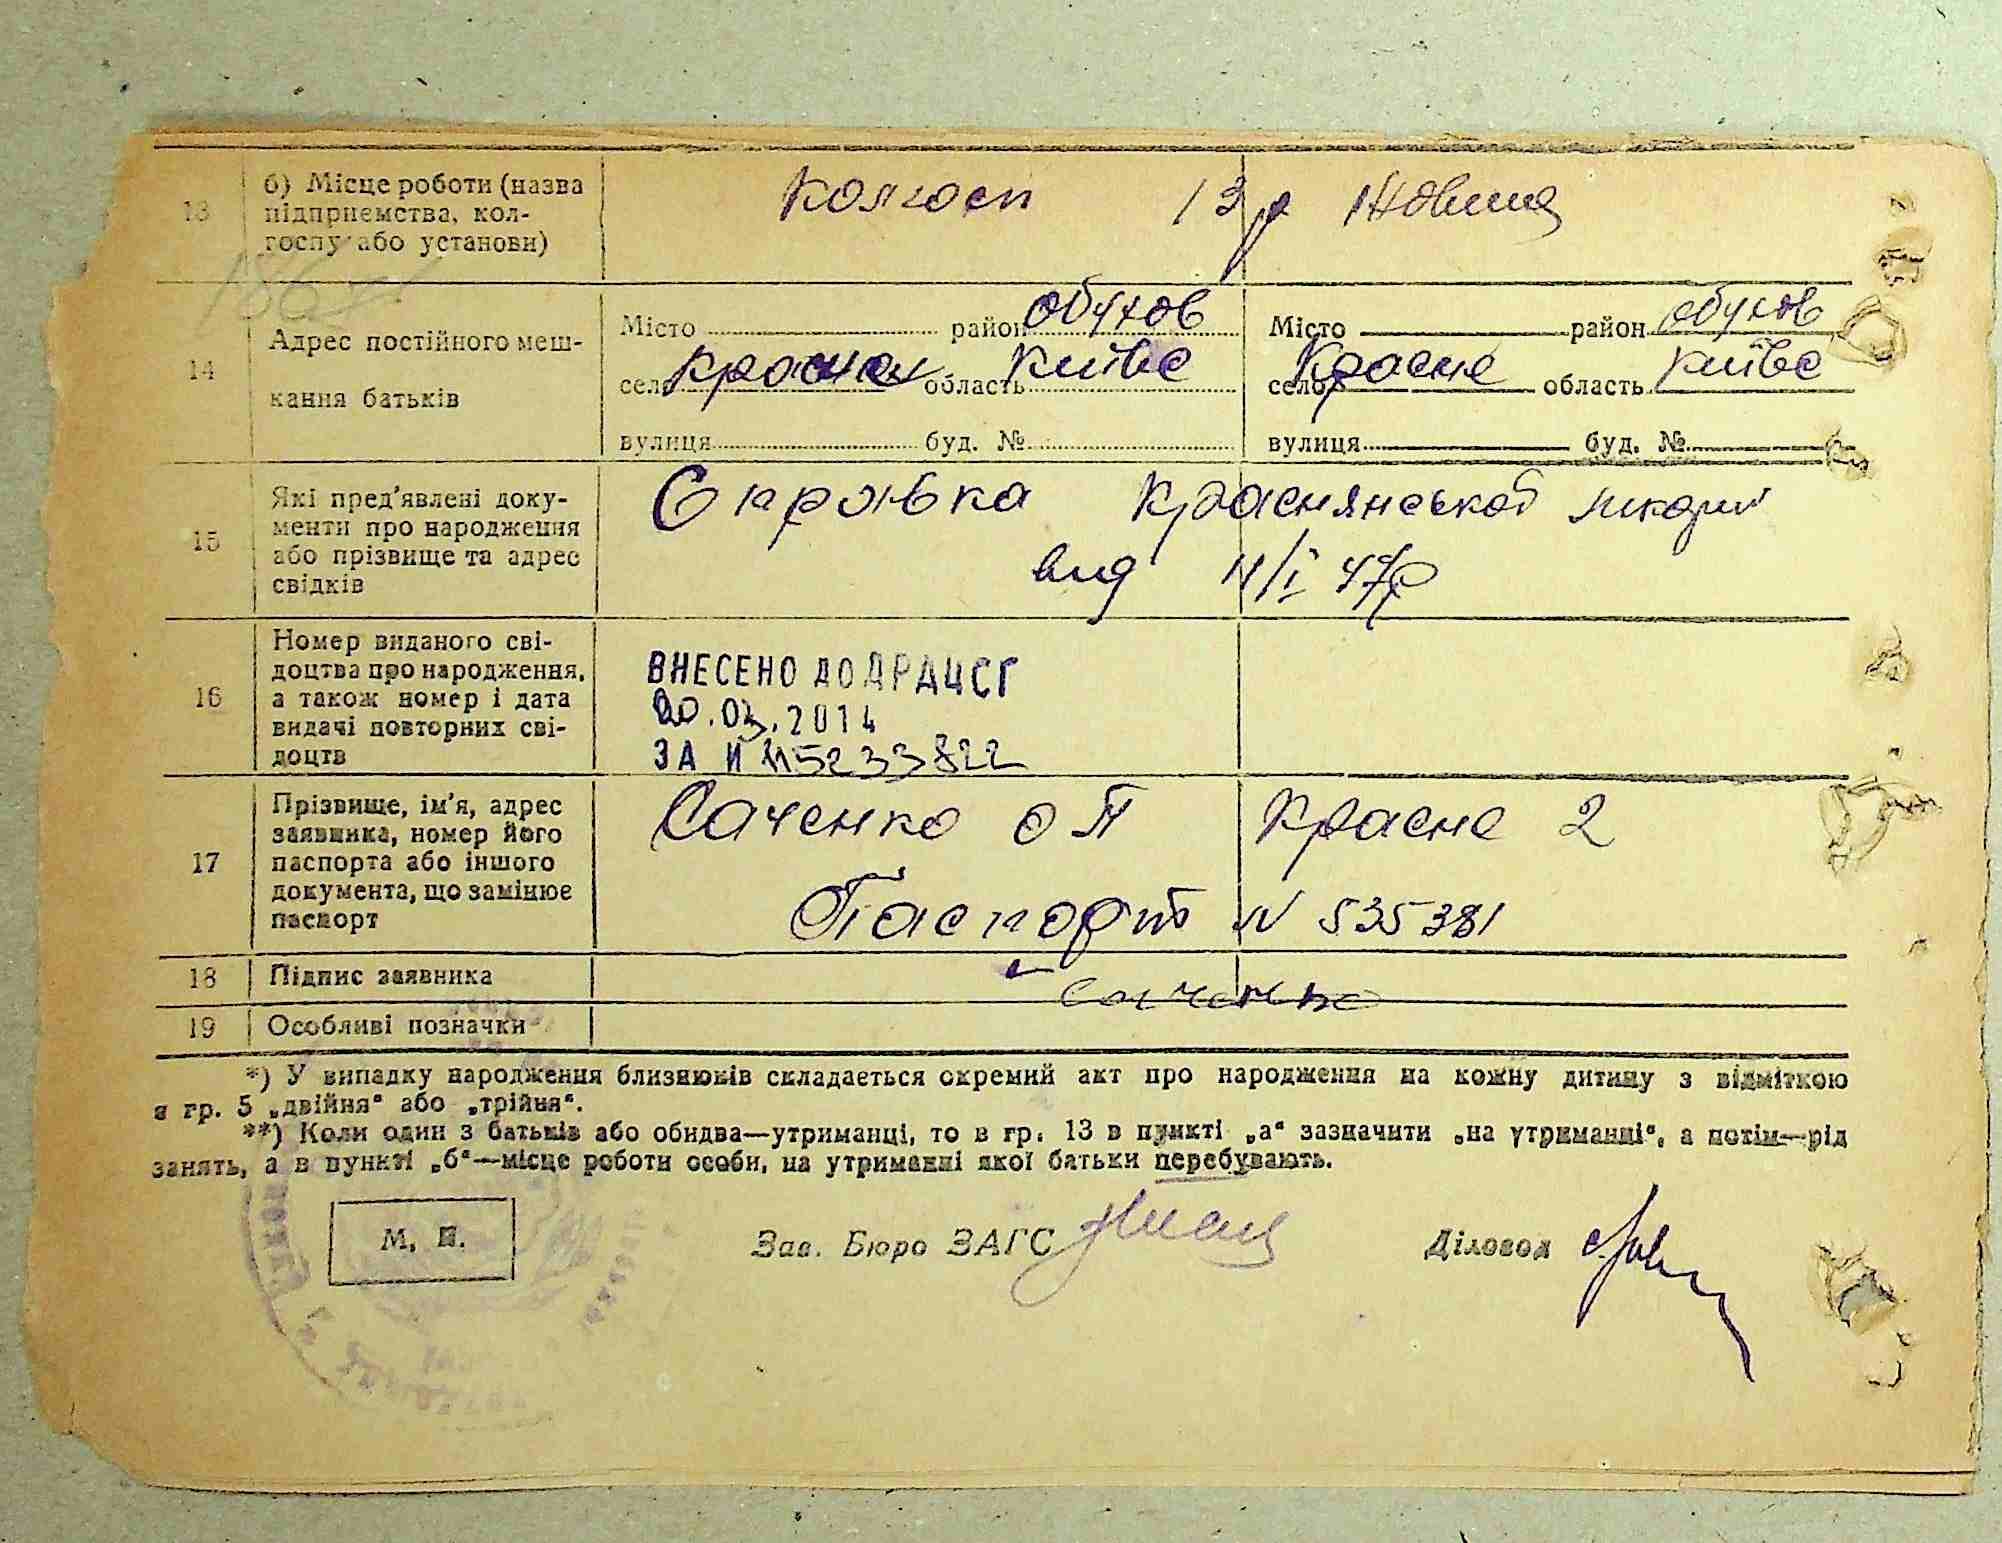 13
б) Місце роботи (назва
підприємства, кол-
госпу або установи)
Колгосп 13 р Жовтня
14
Адрес постійного меш-
кання батьків
Місто район Обухов
село Красне область Київс
вулиця буд. №
Місто район Обухов
село Красне область Київс
вулиця буд. №
15
Які пред'явлені доку-
менти про народження
або прізвище та адрес
свідків
Справка Краснянської школи
вид 11/I 47р
16
Номер виданого сві-
доцтва про народження,
а також номер і дата
видачі повторних сві-
доцтв
ВНЕСЕНО ДО ДРАЦСГ
20.03.2014
ЗА № 115233822
17
Прізвище, ім'я, адрес
заявника, номер його
паспорта або іншого
документа, що замінює
паспорт
Саченко О П Красне 2
Паспорт N 535381
18
Підпис заявника
Саченко
19
Особливі позначки
*) У випадку народження близнюків складається окремий акт про народження на кожну дитину з відміткою
в гр. 5 „двійня“ або „трійня“.
**) Коли один з батьків або обидва—утриманці, то в гр. 13 в пункті „а“ зазначити „на утриманні“, а потім—рід
занять, а в пункті „б“—місце роботи особи, на утриманні якої батьки перебувають.
М. П.
Зав. Бюро ЗАГС
Діловод